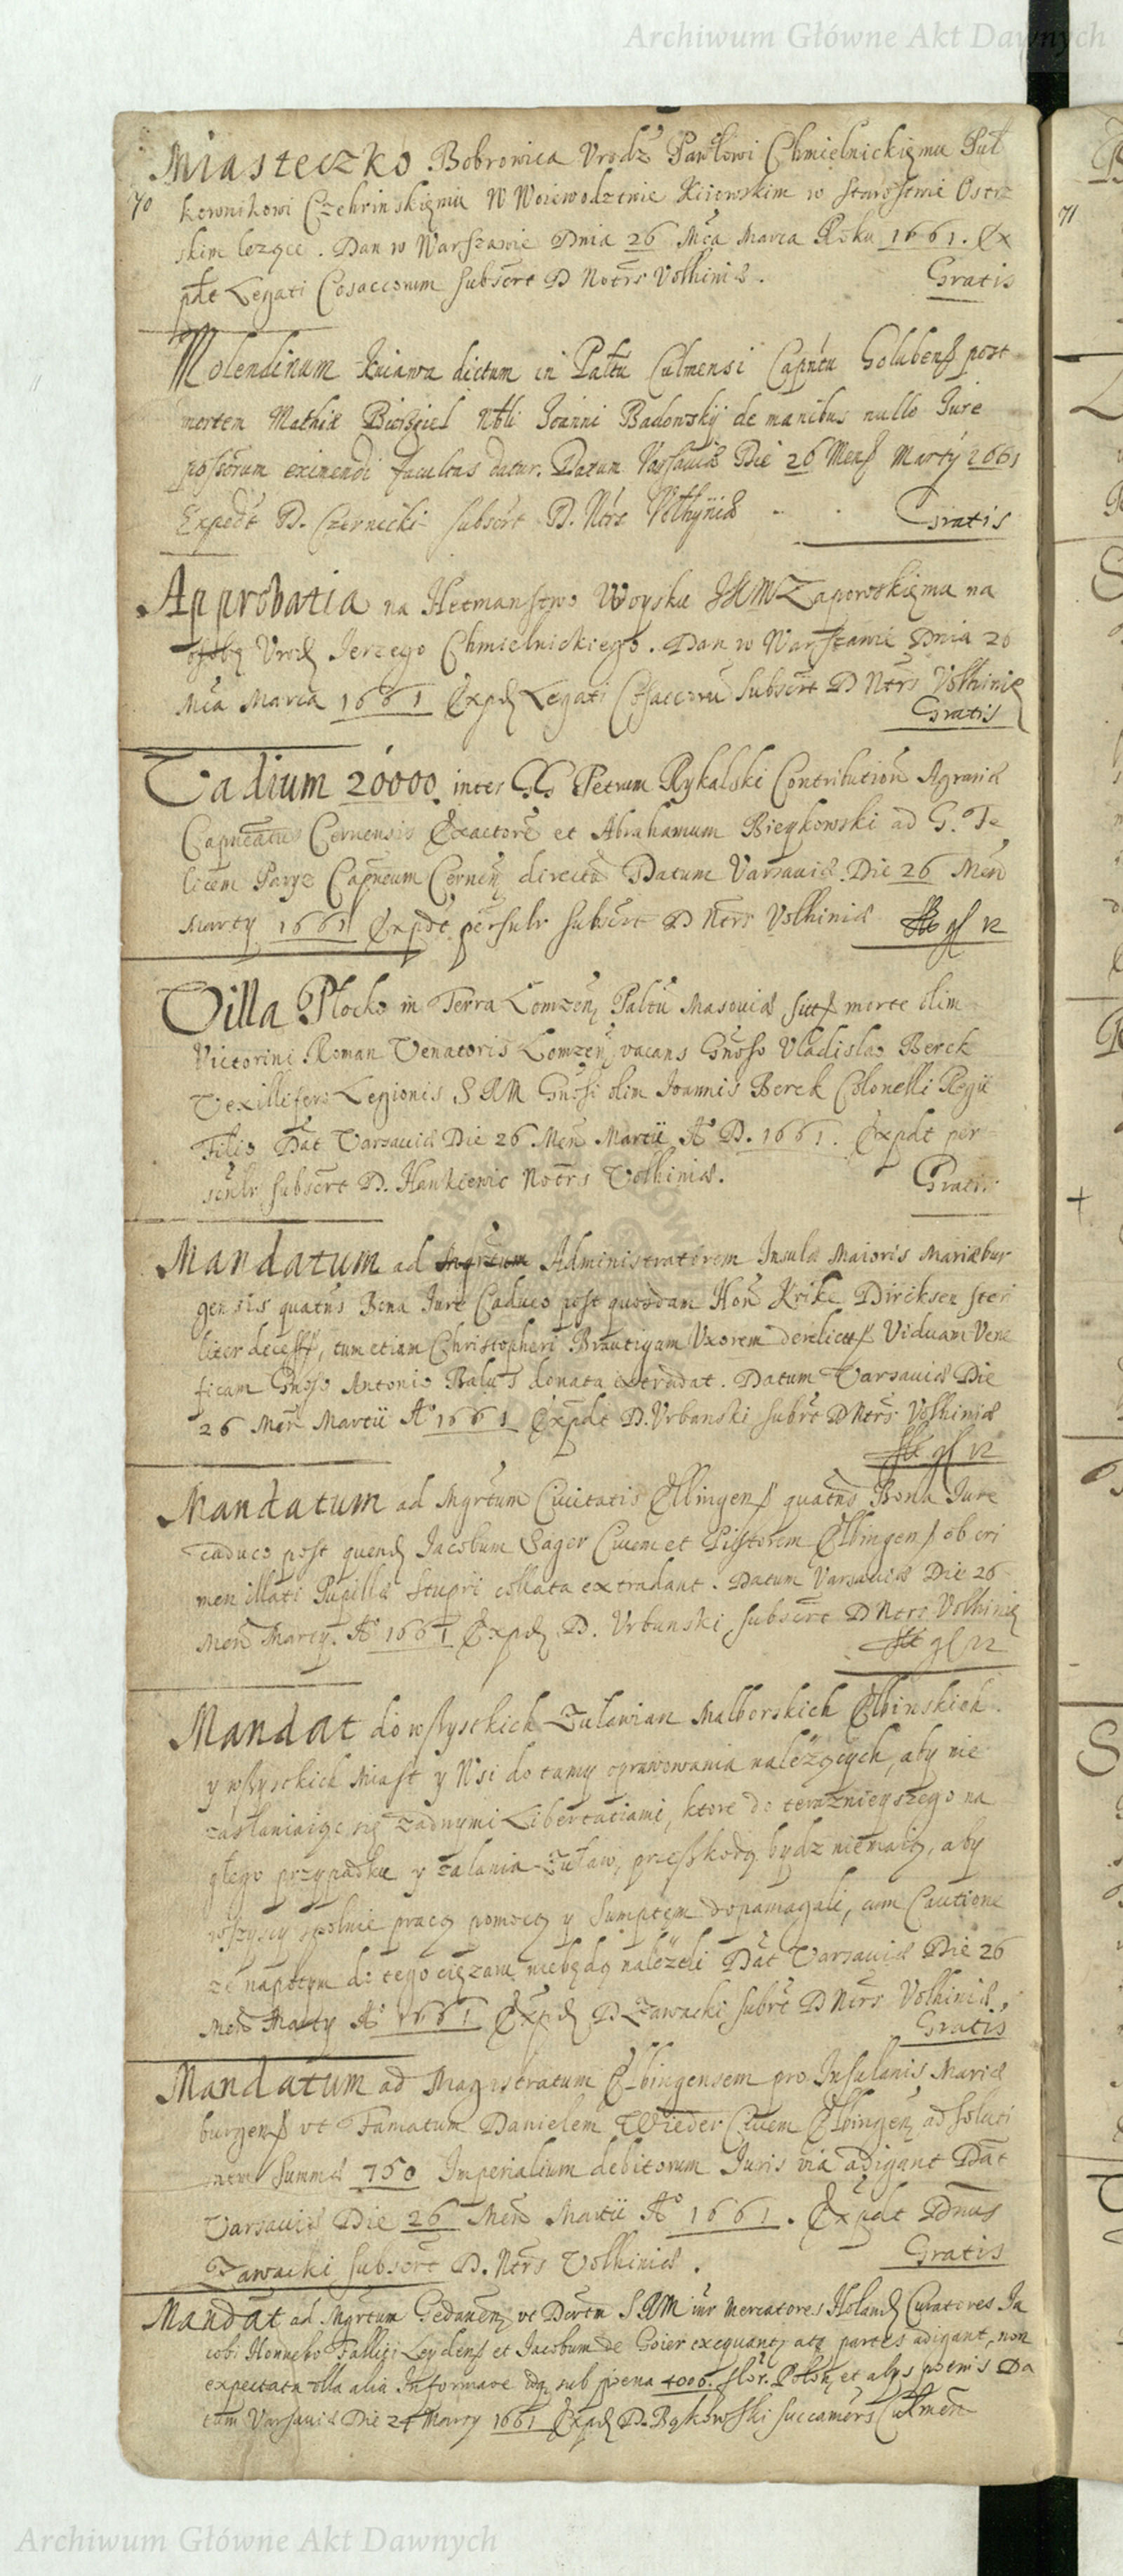 Archiwum Główne Akt Dawnych
Miasteczko Bobrowica Vrodz. Pawłowi Chmielnickięmu Puł
70
kownikowi Czehrinskięmu W Woiewodztwie Kiiowskim w Starostwie Ostrz
skim lezące. Dan w Warszawie Dnia 26 Mca Marca Roku 1661. Ex
pdt Legati Cosaccorum subscrt D Notrs Volhiniæ.
Gratis
Molendinum Kuiawa dictum in Paltu Culmensi Capntu Golubens post
mortem Mathiæ Nbli Ioanni Badowskÿ de manibus nullo Iure
possorum eximendi facultas datur. Datum Varsaviæ Die 26 Mens Martÿ 1661
Expedt D. Czernicki subscrt D. Ntrs Volhÿniæ
Gratis
Approbatia na Hetmanstwo Woysku JKM Zaporoskięmu na
osobę Vrodz Ierzego Chmielnickiego. Dan w Warszawie Dnia 26
Mca Marca 1661 Expd Legati Cosaccoru subscrt D Ntrs Volhiniæ
Gratis
Vadium 20000 inter GG Petrum Rykalski Contribution Agrariæ
Capneatus Cernensis Exactore et Abrahamum Bieykowski ad G. Fe
licem Parys Capneum Cernen directa Datum Varsaviæ Die 26 Men
Martÿ 1661 Expdt persulr subscrt D Ntrs Volhiniæ gl 12
Villa Plocko in Terra Lomzen Paltu Masoviæ sitt morte olim
Victorini Roman Venatoris Lomzen vacans Gnoso Vladislao Berek
Vexillifero Legionis S RM Gnosi olim Ioannis Berek Colonelli Regii
Filio Dat Varsaviæ Die 26 Men Martii A° D. 1661. Expdt per
sculr subscrt D. Hankiewic Notrs Volhiniæ.
Gratis
Mandatum ad Mgrtum Administratorem Insulæ Maioris Mariæbur
gensis quatns Bona Iure Caduco post quondam Hon Krike Dircksen steri
liter decess, tum etiam Christopheri Brautigam Vxorem derelictt Viduam Vene
ficam Gnoso Antonio Balus donata extradat. Datum Varsaviæ Die
26 Men Martii A° 1661 Expdt D. Vrbanski subsrt D Ntrs Volhiniæ
gl 12
Mandatum ad Mgrtum Civitatis Elbingens quatns Bona Iure
caduco post quend Iacobum Sager Civem et Pistorem Elbingens ob cri
men illati Pupillæ Stuprii collata extradant. Datum Varsaviæ Die 26
Men Martÿ. A° 1661 Expd D. Vrbanski subscrt D Ntrs Volhiniæ
gl 12
Mandat do wszystkich Zuławian Malborskich Elbinskich
y wszystkich Miast y Wsi do tamy oprawowania nalezących, aby nie
zasłaniaiąc się zadnymi Libertaciami, ktore do teraznieyszego na
głego przypadku y zalania Zuław, przeszkodą bydz niemaią, aby
wszyscy spolnie pracą pomocą y Sumptem dopamagali, cum Cautione
ze napotym do tego ciężaru niebędą nalezeli Dat Varsaviæ Die 26
Men Martÿ A° 1661 Expd D Zawacki subsrt D Ntrs Volhiniæ
Gratis
Mandatum ad Magistratum Elbingensem pro Insulanis Mariæ
burgens vt Famatum Danielem Wieder Civem Elbingen ad soluti
onem Summæ 750 Imperialium debitorum Iuris via adigant Dat
Varsaviæ Die 26 Men Martii A° 1661. Expdt Dnus
Zawacki subscrt D. Ntrs Volhiniæ.
Gratis
Mandat ad Mgrtum Gedanen vt Dcrtu S RM inr Mercatores Holand Curatores Ia
cobi Honnebo Falliti Leydens et Iacobum de Goier exequant, atq partes adigant, non
expectata vlla alia Informaoe sub poena 4000. flor. Polon et alys poenis Da
tum Varsaviæ Die 24 Martÿ 1661 Expd D. Bąkowski Succamers Culmen
71
Archiwum Główne Akt Dawnych